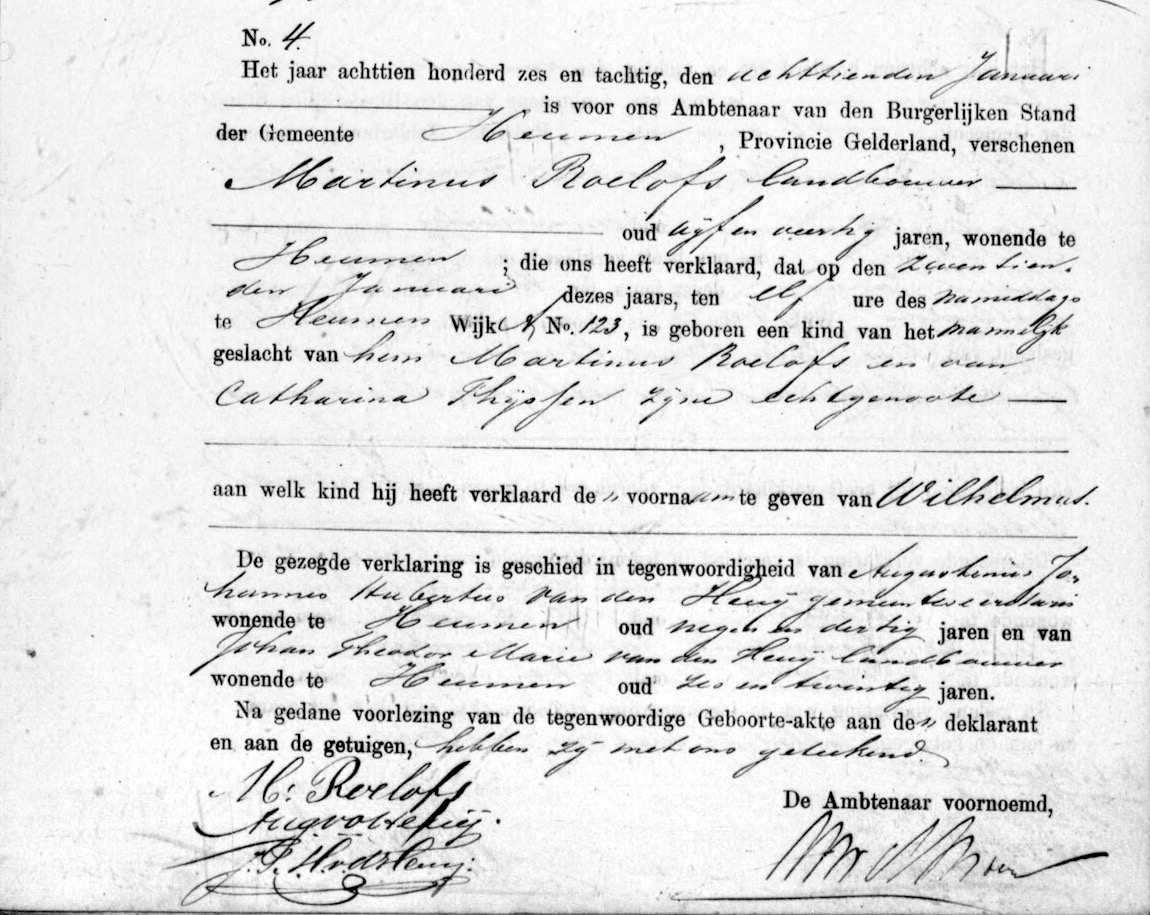 No. 4.
Het jaar achttien honderd zes en tachtig, den achttienden Januari
is voor ons Ambtenaar van den Burgerlijken Stand
der Gemeente Heumen, Provincie Gelderland, verschenen
Martinus Roelofs landbouwer
oud vijf en veertig jaren, wonende te
Heumen; die ons heeft verklaard, dat op den zeventien-
den Januari dezes jaars, ten elf ure des namiddags
te Heumen Wijk A, No. 123, is geboren een kind van het mannelijk
geslacht van hem Martinus Roelofs en van
Catharina Thijssen zijne echtgenoote
aan welk kind hij heeft verklaard de " voornaam te geven van Wilhelmus.
De gezegde verklaring is geschied in tegenwoordigheid van Augustinus Jo-
hannes Hubertus van den Heuij gemeentesecretaris
wonende te Heumen oud negen en dertig jaren en van
Johan Theodor Marie van den Heuij landbouwer
wonende te Heumen oud zes en twintig jaren.
Na gedane voorlezing van de tegenwoordige Geboorte-akte aan de " deklarant
en aan de getuigen, hebben zij met ons geteekend
M. Roelofs
De Ambtenaar voornoemd,